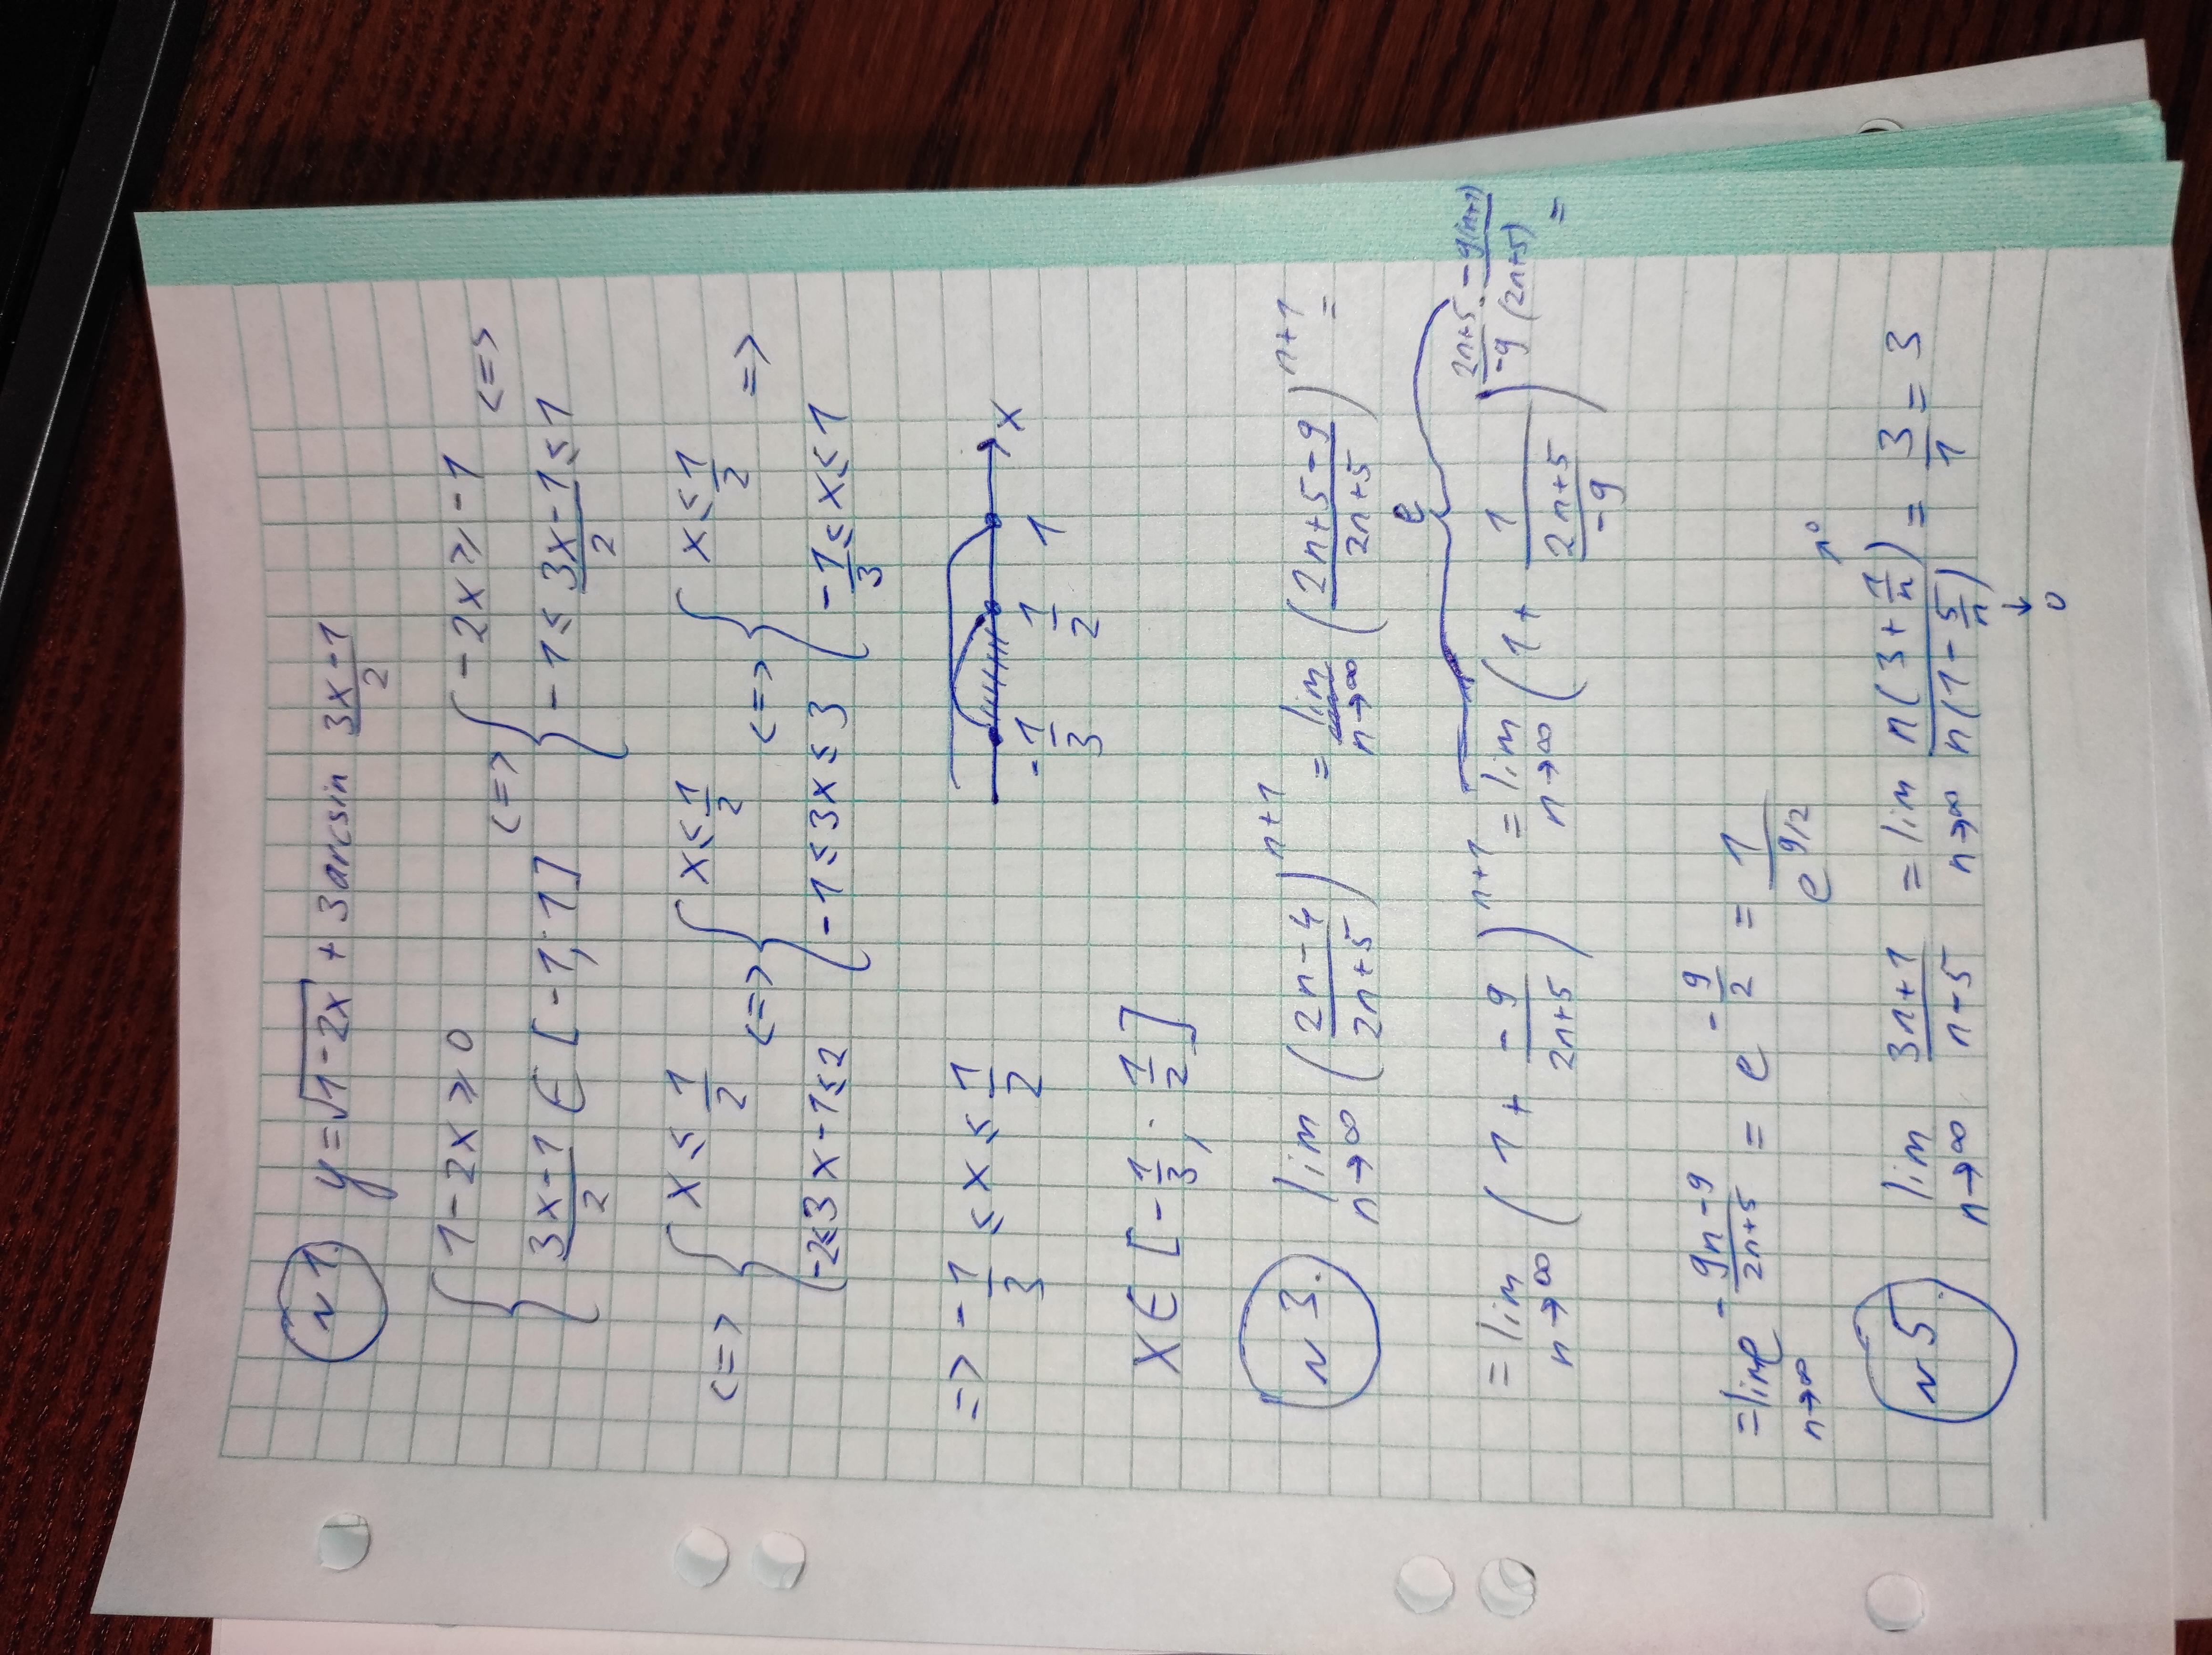 N 1. y = √(1-2x) + 3arcsin (3x-1)/2
{ 1-2x ⩾ 0 <=> { -2x ⩾ -1 <=>
(3x-1)/2 ∈ [-1; 1] -1 ≤ (3x-1)/2 ≤ 1
<=> { x ≤ 1/2 <=> { x ≤ 1/2 <=> { x ≤ 1/2 =>
-2 ≤ 3x-1 ≤ 2 -1 ≤ 3x ≤ 3 -1/3 ≤ x ≤ 1
=> -1/3 ≤ x ≤ 1/2
-1/3 1/2 1 x
x ∈ [-1/3; 1/2]
N 3. lim n→∞ ((2n-4)/(2n+5))^(n+1) = lim n→∞ ((2n+5-9)/(2n+5))^(n+1) =
e
= lim n→∞ (1 + (-9)/(2n+5))^(n+1) = lim n→∞ (1 + 1/((2n+5)/(-9)))^((2n+5)/(-9) · (-9(n+1))/(2n+5)) =
= lim n→∞ e^(-(9n-9)/(2n+5)) = e^(-9/2) = 1/e^(9/2)
N 5. lim n→∞ (3n+1)/(n-5) = lim n→∞ (n(3+1/n)→0)/(n(1-5/n)→0) = 3/1 = 3